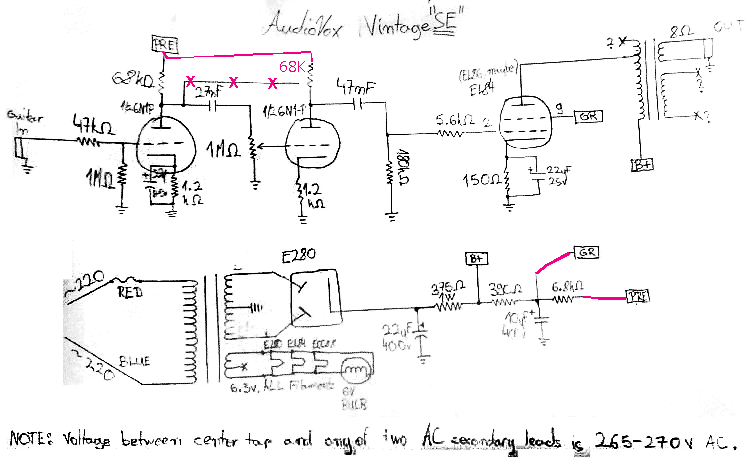 AudioVox Vintage "SE"
PRE
68kΩ
68K
X X X
27nF
47nF
1/2 6N1P
1/2 6N1P
Guitar
In
47kΩ
1MΩ
1MΩ
1.2
kΩ
1.2
kΩ
180kΩ
5.6kΩ
2
(EL86 maybe)
EL84
9
GR
150Ω
22uF
25V
? X
8Ω
OUT
X?
X?
B+
~220
RED
BLUE
~220
EZ80
B+
375Ω
1W
390Ω
GR
6.8kΩ
PRE
22uF
400V
10uF
EZ80 EL84
6.3v, ALL Filaments
6V
BULB
NOTE: Voltage between center tap and any of two AC secondary leads is 265-270v AC.